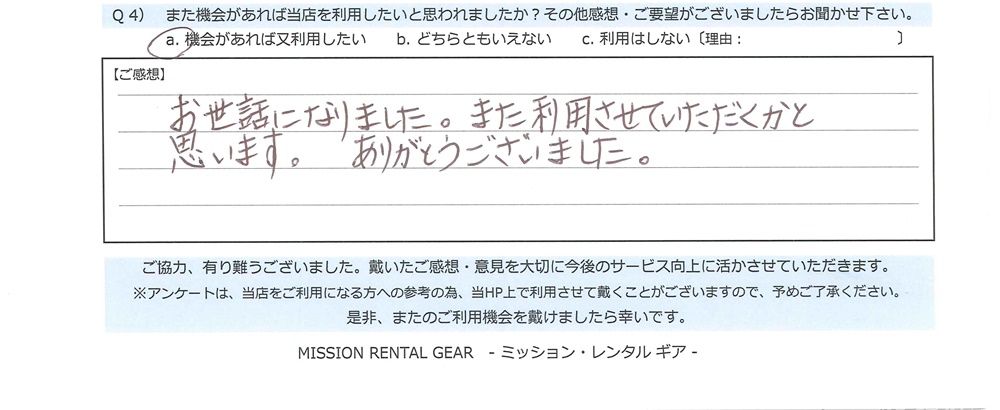 Q4) また機会があれば当店を利用したいと思われましたか？その他感想・ご要望がございましたらお聞かせ下さい。
a. 機会があれば又利用したい　b. どちらともいえない　c. 利用はしない〔理由：　　　　　　　　　〕
【ご感想】
お世話になりました。また利用させていただくかと
思います。　ありがとうございました。
ご協力、有り難うございました。戴いたご感想・意見を大切に今後のサービス向上に活かさせていただきます。
※アンケートは、当店をご利用になる方への参考の為、当HP上で利用させて戴くことがございますので、予めご了承ください。
是非、またのご利用機会を戴けましたら幸いです。
MISSION RENTAL GEAR　- ミッション・レンタル ギア -